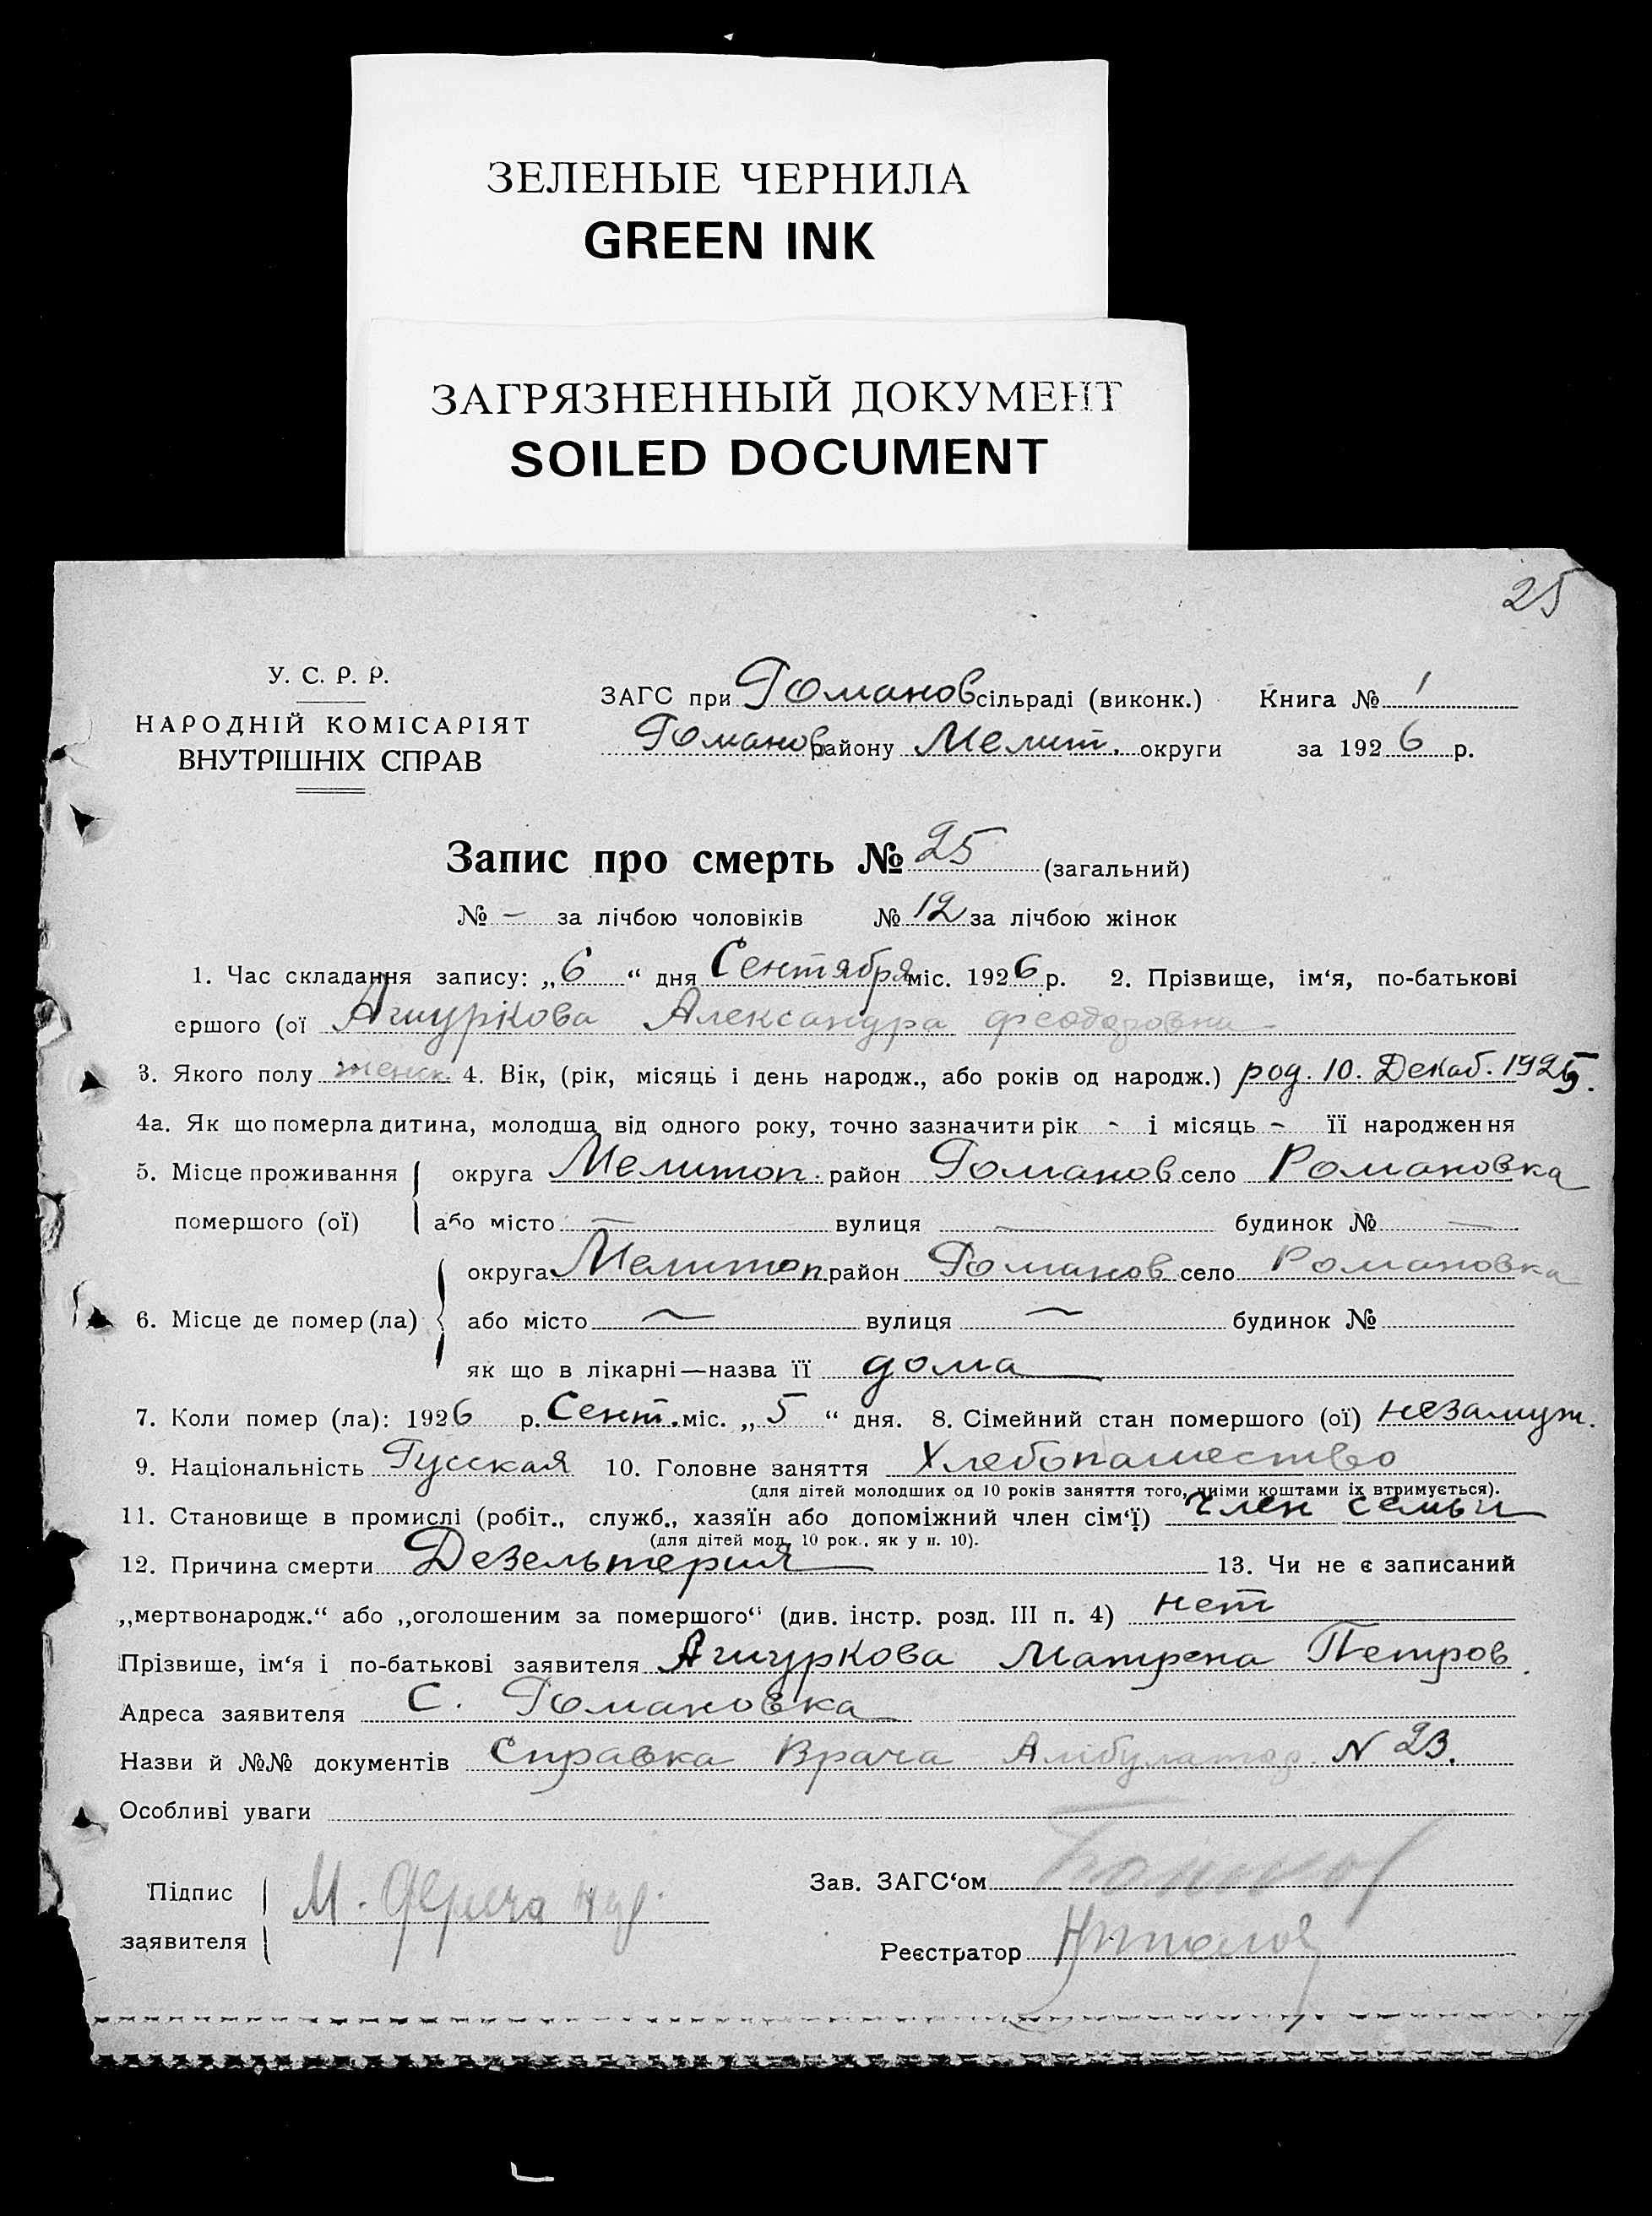 ЗЕЛЕНЫЕ ЧЕРНИЛА
GREEN INK
ЗАГРЯЗНЕННЫЙ ДОКУМЕНТ
SOILED DOCUMENT
25
У. С. Р. Р.
НАРОДНІЙ КОМІСАРІЯТ
ВНУТРІШНІХ СПРАВ
ЗАГС при Романов сільраді (виконк.) Книга № 1
Романов району Мелит. округи за 1926 р.
Запис про смерть № 25 (загальний)
№ - за лічбою чоловіків № 12 за лічбою жінок
1. Час складання запису: „6“ дня Сентября міс. 1926 р. 2. Прізвище, ім‘я, по-батькові
ершого (ої Ашуркова Александра Феодоровна
3. Якого полу женск. 4. Вік, (рік, місяць і день народж., або років од народж.) род. 10. Декаб. 1925.
4а. Як що померла дитина, молодша від одного року, точно зазначити рік - і місяць - її народження
5. Місце проживання округа Мелитоп. район Романов село Романовка
помершого (ої) або місто — вулиця — будинок № —
округа Мелитоп. район Романов село Романовка
6. Місце де помер (ла) або місто — вулиця — будинок №
як що в лікарні—назва її дома
7. Коли помер (ла): 1926 р. Сент. міс. „5“ дня. 8. Сімейний стан помершого (ої) незамуж.
9. Національність Русская 10. Головне заняття Хлебопашество
(для дітей молодших од 10 років заняття того, чиїми коштами їх втримується).
11. Становище в промислі (робіт., служб., хазяїн або допоміжний член сім‘ї) член семьи
(для дітей мол. 10 рок., як у п. 10).
12. Причина смерти Дезельтерия 13. Чи не є записаний
„мертвонародж.“ або „оголошеним за помершого“ (див. інстр. розд. III п. 4) нет
Прізвище, ім‘я і по-батькові заявителя Ашуркова Матрена Петров.
Адреса заявителя С. Романовка
Назви й №№ документів Справка Врача Амбулатор. N 23.
Особливі уваги
Підпис
заявителя
М.
Зав. ЗАГС‘ом
Реєстратор